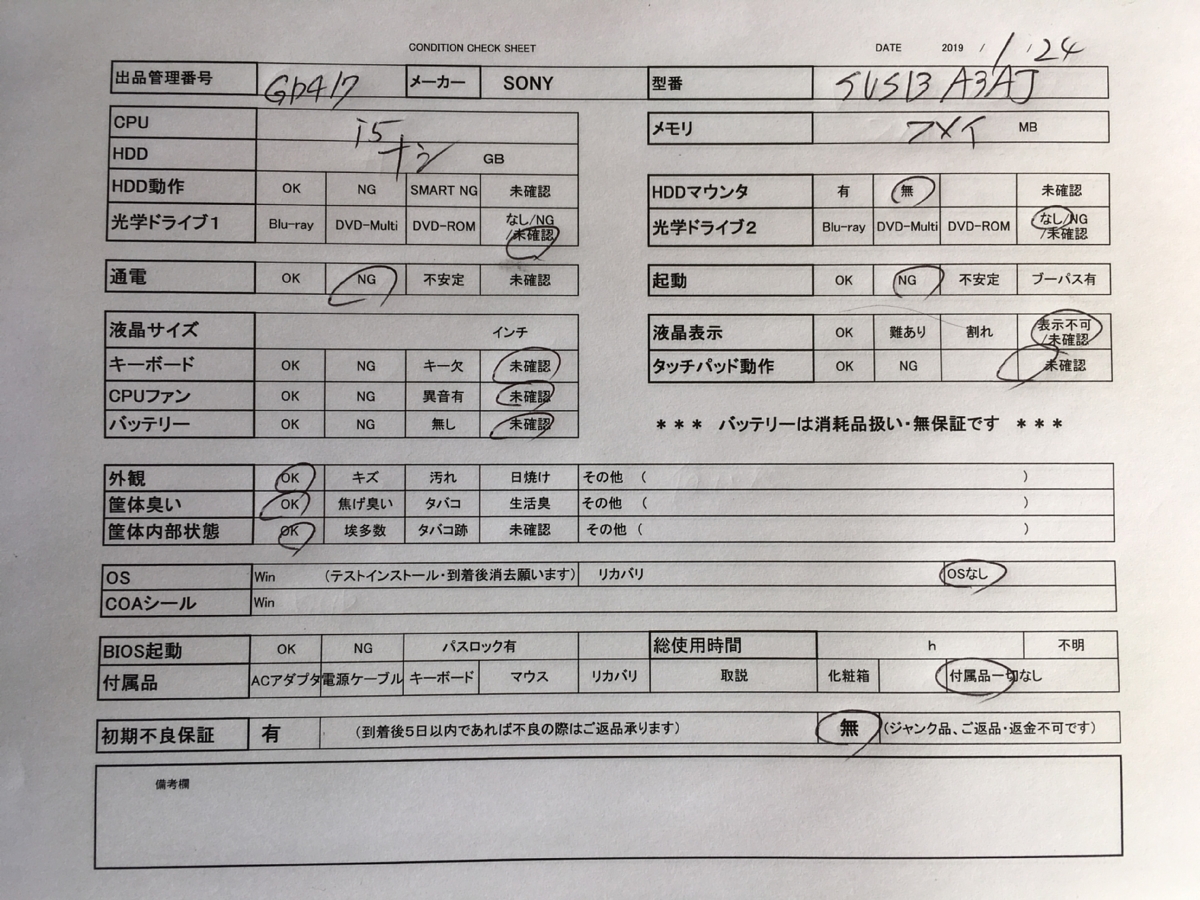 CONDITION CHECK SHEET DATE 2019 / 1 / 24
出品管理番号 GD417 メーカー SONY 型番 SVS13A3AJ
CPU i5 メモリ MB
HDD ナシ GB
HDD動作 OK NG SMART NG 未確認 HDDマウンタ 有 無 未確認
光学ドライブ1 Blu-ray DVD-Multi DVD-ROM なし/NG 光学ドライブ2 Blu-ray DVD-Multi DVD-ROM なし/NG
/未確認 /未確認
通電 OK NG 不安定 未確認 起動 OK NG 不安定 ブーパス有
液晶サイズ インチ 液晶表示 OK 難あり 割れ 表示不可
/未確認
キーボード OK NG キー欠 未確認 タッチパッド動作 OK NG 未確認
CPUファン OK 異音有 未確認
バッテリー OK NG 無し 未確認 *** バッテリーは消耗品扱い・無保証です ***
外観 OK キズ 汚れ 日焼け その他 ( )
筐体臭い OK 焦げ臭い タバコ 生活臭 その他 ( )
筐体内部状態 OK 埃多数 タバコ跡 未確認 その他 ( )
OS Win (テストインストール・到着後消去願います) リカバリ OSなし
COAシール Win
BIOS起動 OK NG パスロック有 総使用時間 h 不明
付属品 ACアダプタ 電源ケーブル キーボード マウス リカバリ 取説 化粧箱 付属品一切なし
初期不良保証 有 (到着後5日以内であれば不良の際はご返品承ります) 無 (ジャンク品、ご返品・返金不可です)
備考欄